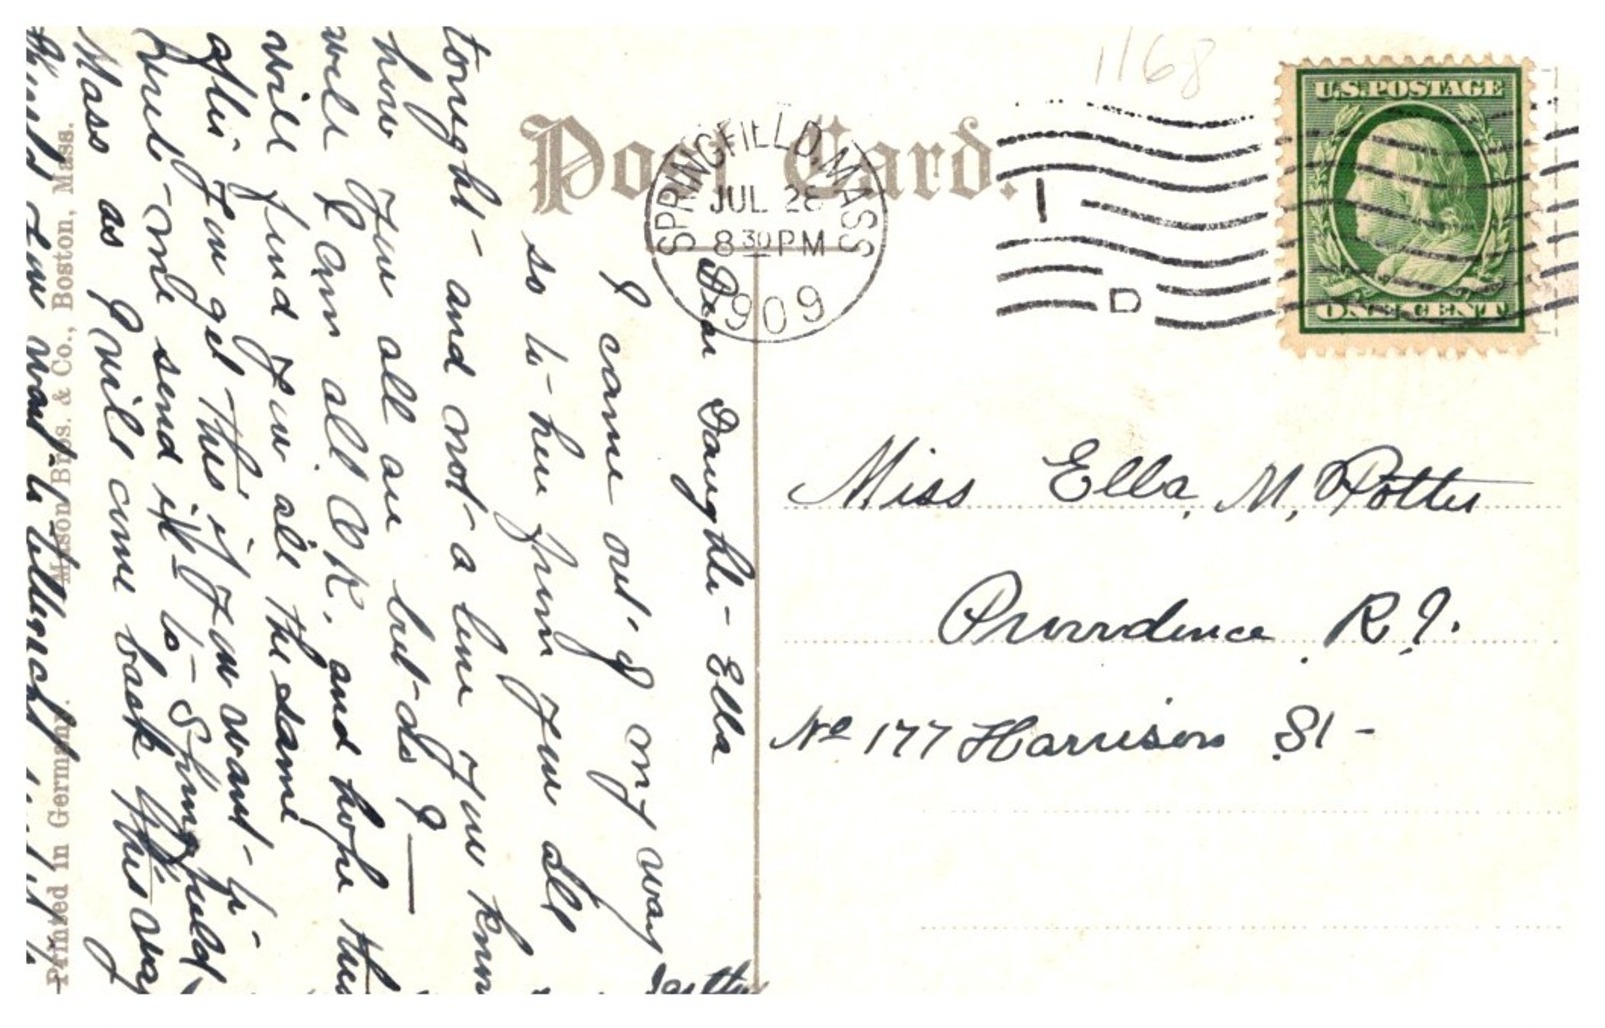 1168
U.S. POSTAGE
ONE CENT
Post Card.
SPRINGFIELD, MASS.
JUL 28
8 30 PM
1909
1
D
Miss Ella. M. Potter
Providence. R.I.
No 177 Harrison St -
Dear Daughter - Ella
I came out of my way
so to hear from you all
tonight - and not a line you know
how you all are but do I —
well I am all O K. and hope this
will find you all the same
after you get this if you want to
send it to - Springfield
Mass as I will come back this way
you want to
Mason Bros. & Co., Boston, Mass.
Printed in Germany.